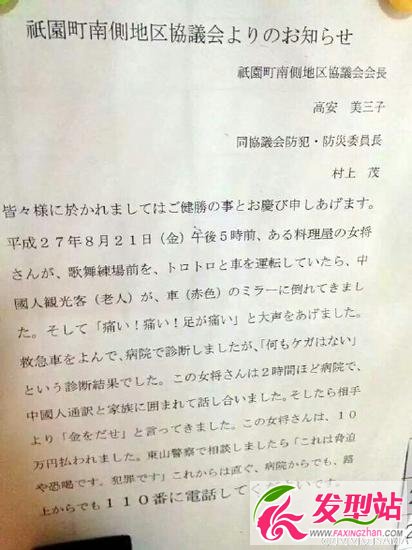 祇園町南側地区協議会よりのお知らせ
祇園町南側地区協議会会長
高安 美三子
同協議会防犯・防災委員長
村上 茂
皆々様に於かれましてはご健勝の事とお慶び申しあげます。
平成27年8月21日(金)午後5時前、ある料理屋の女将
さんが、歌舞練場前を、トロトロと車を運転していたら、中
國人観光客(老人)が、車(赤色)のミラーに倒れてきまし
た。そして「痛い!痛い!足が痛い」と大声をあげました。
救急車をよんで、病院で診断しましたが、「何もケガはない」
という診断結果でした。この女将さんは2時間ほど病院で、
中國人通訳と家族に囲まれて話し合いました。そしたら相手
より「金をだせ」と言ってきました。この女将さんは、10
万円払われました。東山警察で相談しましたら「これは脅迫
や恐喝です。犯罪です」これからは直ぐ、病院からでも、路
上からでも110番に電話して
です。
发型站
www.faxingzhan.com